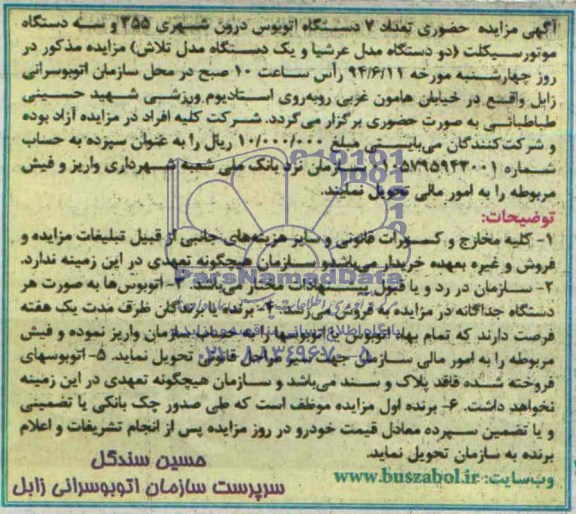 آگهی مزایده حضوری تعداد ۷ دستگاه اتوبوس درون شهری ۳۵۵ و سه دستگاه
موتورسیکلت (دو دستگاه مدل عرشیا و یک دستگاه مدل تلاش) مزایده مذکور در
روز چهارشنبه مورخه ۹۴/۶/۱۱ رأس ساعت ۱۰ صبح در محل سازمان اتوبوسرانی
زابل واقع در خیابان هامون غربی روبه‌روی استادیوم ورزشی شهید حسینی
طباطبائی به صورت حضوری برگزار می‌گردد. شرکت کلیه افراد در مزایده آزاد بوده
و شرکت‌کنندگان می‌بایستی مبلغ ۱۰/۰۰۰/۰۰۰ ریال را به عنوان سپرده به حساب
شماره سازمان نزد بانک ملی شعبه شهرداری واریز و فیش
مربوطه را به امور مالی تحویل نمایند.
توضیحات:
۱- کلیه مخارج و کسورات قانونی و سایر هزینه‌های جانبی از قبیل تبلیغات مزایده و
فروش و غیره بعهده خریدار می‌باشد و سازمان هیچگونه تعهدی در این زمینه ندارد.
۲- سازمان در رد و یا قبول پیشنهادات مختار می‌باشد. ۳- اتوبوس‌ها به صورت هر
دستگاه جداگانه در مزایده به فروش می‌رسد. ۴- برنده یا برندگان ظرف مدت یک هفته
فرصت دارند که تمام بهاء اتوبوس یا اتوبوسها را به حساب سازمان واریز نموده و فیش
مربوطه را به امور مالی سازمان جهت سیر مراحل قانونی تحویل نماید. ۵- اتوبوسهای
فروخته شده فاقد پلاک و سند می‌باشد و سازمان هیچگونه تعهدی در این زمینه
نخواهد داشت. ۶- برنده اول مزایده موظف است که طی صدور چک بانکی یا تضمینی
و یا تضمین سپرده معادل قیمت خودرو در روز مزایده پس از انجام تشریفات و اعلام
برنده به سازمان تحویل نماید.
وب‌سایت: www.buszabol.ir
حسین سندگل
سرپرست سازمان اتوبوسرانی زابل
ParsNamadData
۰۲۱-۸۸۳۴۹۶۷۰-۵